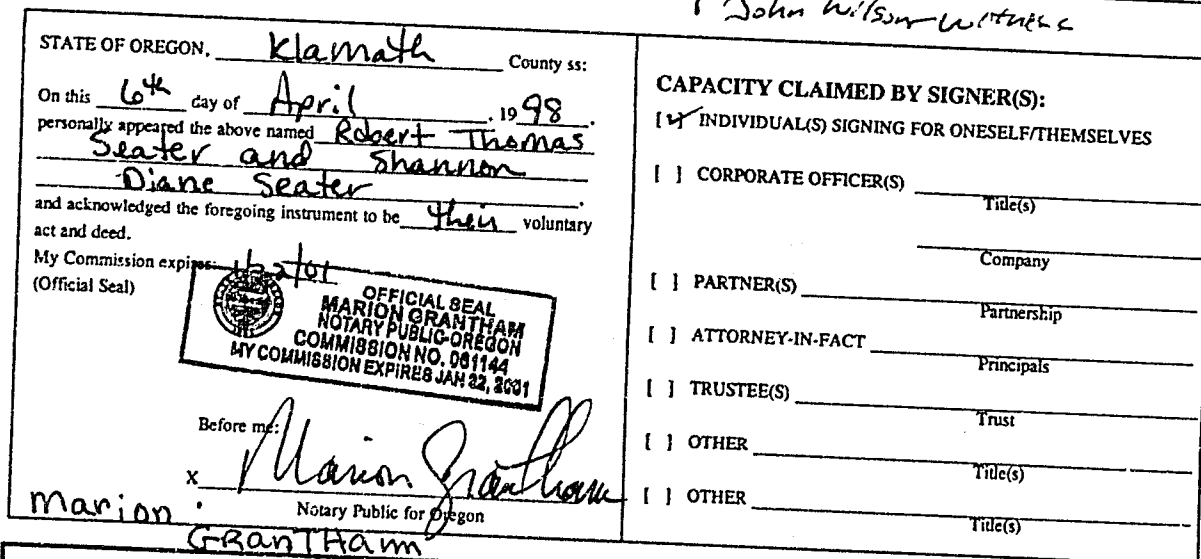 John Wilson Witness
STATE OF OREGON, Klamath County ss:
On this 6th day of April, 1998.
personally appeared the above named Robert Thomas
Seater and Shannon
Diane Seater.
and acknowledged the foregoing instrument to be their voluntary
act and deed.
My Commission expires: 1/22/01
(Official Seal)
OFFICIAL SEAL
MARION GRANTHAM
NOTARY PUBLIC-OREGON
COMMISSION NO. 061144
MY COMMISSION EXPIRES JAN 22, 2001
Before me:
X Marion Grantham
Notary Public for Oregon
Marion
GRANTHAM
CAPACITY CLAIMED BY SIGNER(S):
[✓] INDIVIDUAL(S) SIGNING FOR ONESELF/THEMSELVES
[ ] CORPORATE OFFICER(S)
Title(s)
Company
[ ] PARTNER(S)
Partnership
[ ] ATTORNEY-IN-FACT
Principals
[ ] TRUSTEE(S)
Trust
[ ] OTHER
Title(s)
[ ] OTHER
Title(s)